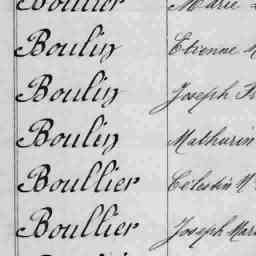 Boullier Marie
Boulin Etienne
Boulin Joseph
Boulin Mathurin
Boullier Célestin M
Boullier Joseph Mar